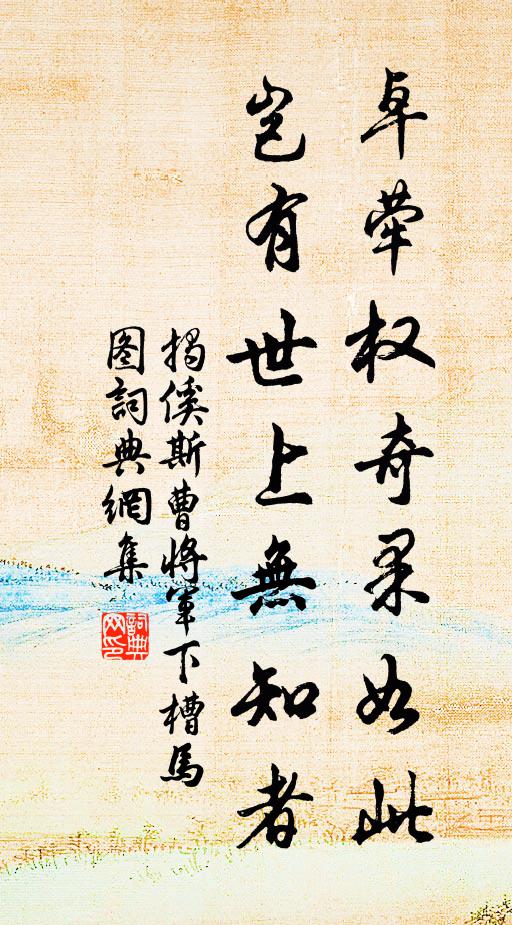 卓犖权奇果如此
豈有世上無知者
揭傒斯曹將軍下槽馬
图詞典網集
詞典网印